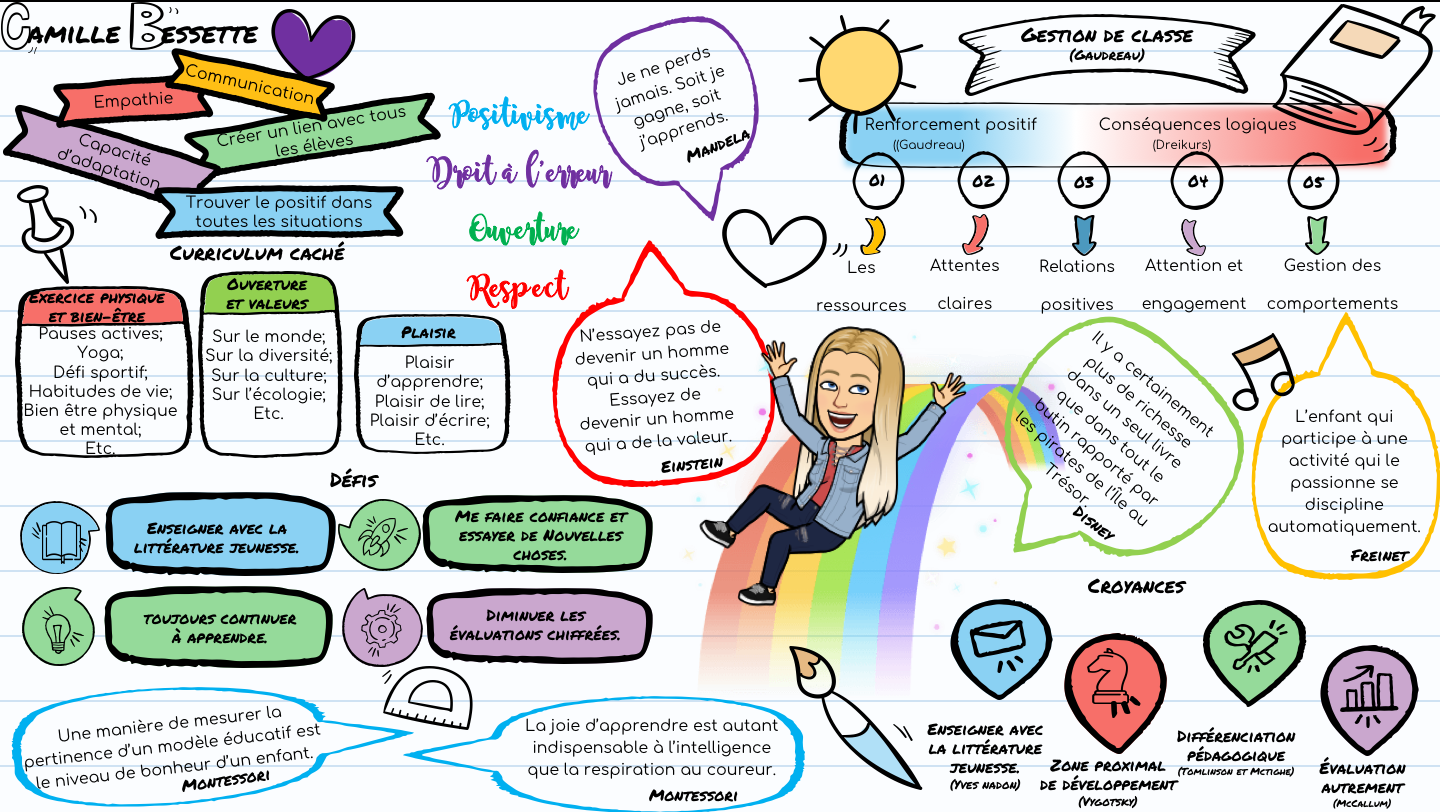 Camille Bessette
Communication
Empathie
Créer un lien avec tous
les élèves
Capacité
d'adaptation
Trouver le positif dans
toutes les situations
Positivisme
Droit à l'erreur
Ouverture
Respect
Je ne perds
jamais. Soit je
gagne, soit
j'apprends.
Mandela
Gestion de classe
(Gaudreau)
Renforcement positif
((Gaudreau)
Conséquences logiques
(Dreikurs)
01
02
03
04
05
Les
ressources
Attentes
claires
Relations
positives
Attention et
engagement
Gestion des
comportements
Curriculum caché
Exercice physique
et bien-être
Pauses actives;
Yoga;
Défi sportif;
Habitudes de vie;
Bien être physique
et mental;
Etc.
Ouverture
et valeurs
Sur le monde;
Sur la diversité;
Sur la culture;
Sur l'écologie;
Etc.
Plaisir
Plaisir
d'apprendre;
Plaisir de lire;
Plaisir d'écrire;
Etc.
N'essayez pas de
devenir un homme
qui a du succès.
Essayez de
devenir un homme
qui a de la valeur.
Einstein
Il y a certainement
plus de richesse
dans un seul livre
que dans tout le
butin rapporté par
les pirates de l'Île au
Trésor.
Disney
L'enfant qui
participe à une
activité qui le
passionne se
discipline
automatiquement.
Freinet
Défis
Enseigner avec la
littérature jeunesse.
Me faire confiance et
essayer de Nouvelles
choses.
toujours continuer
à apprendre.
Diminuer les
évaluations chiffrées.
Une manière de mesurer la
pertinence d'un modèle éducatif est
le niveau de bonheur d'un enfant.
Montessori
La joie d'apprendre est autant
indispensable à l'intelligence
que la respiration au coureur.
Montessori
Croyances
Enseigner avec
la littérature
jeunesse.
(Yves nadon)
Zone proximal
de développement
(Vygotsky)
Différenciation
pédagogique
(Tomlinson et McTighe)
Évaluation
autrement
(McCallum)